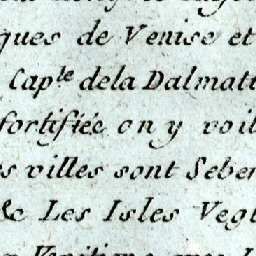 ques de Venise et
Cap.le dela Dalmati
fortifiée on y voit
es villes sont Seben
&c Les Isles Vegl